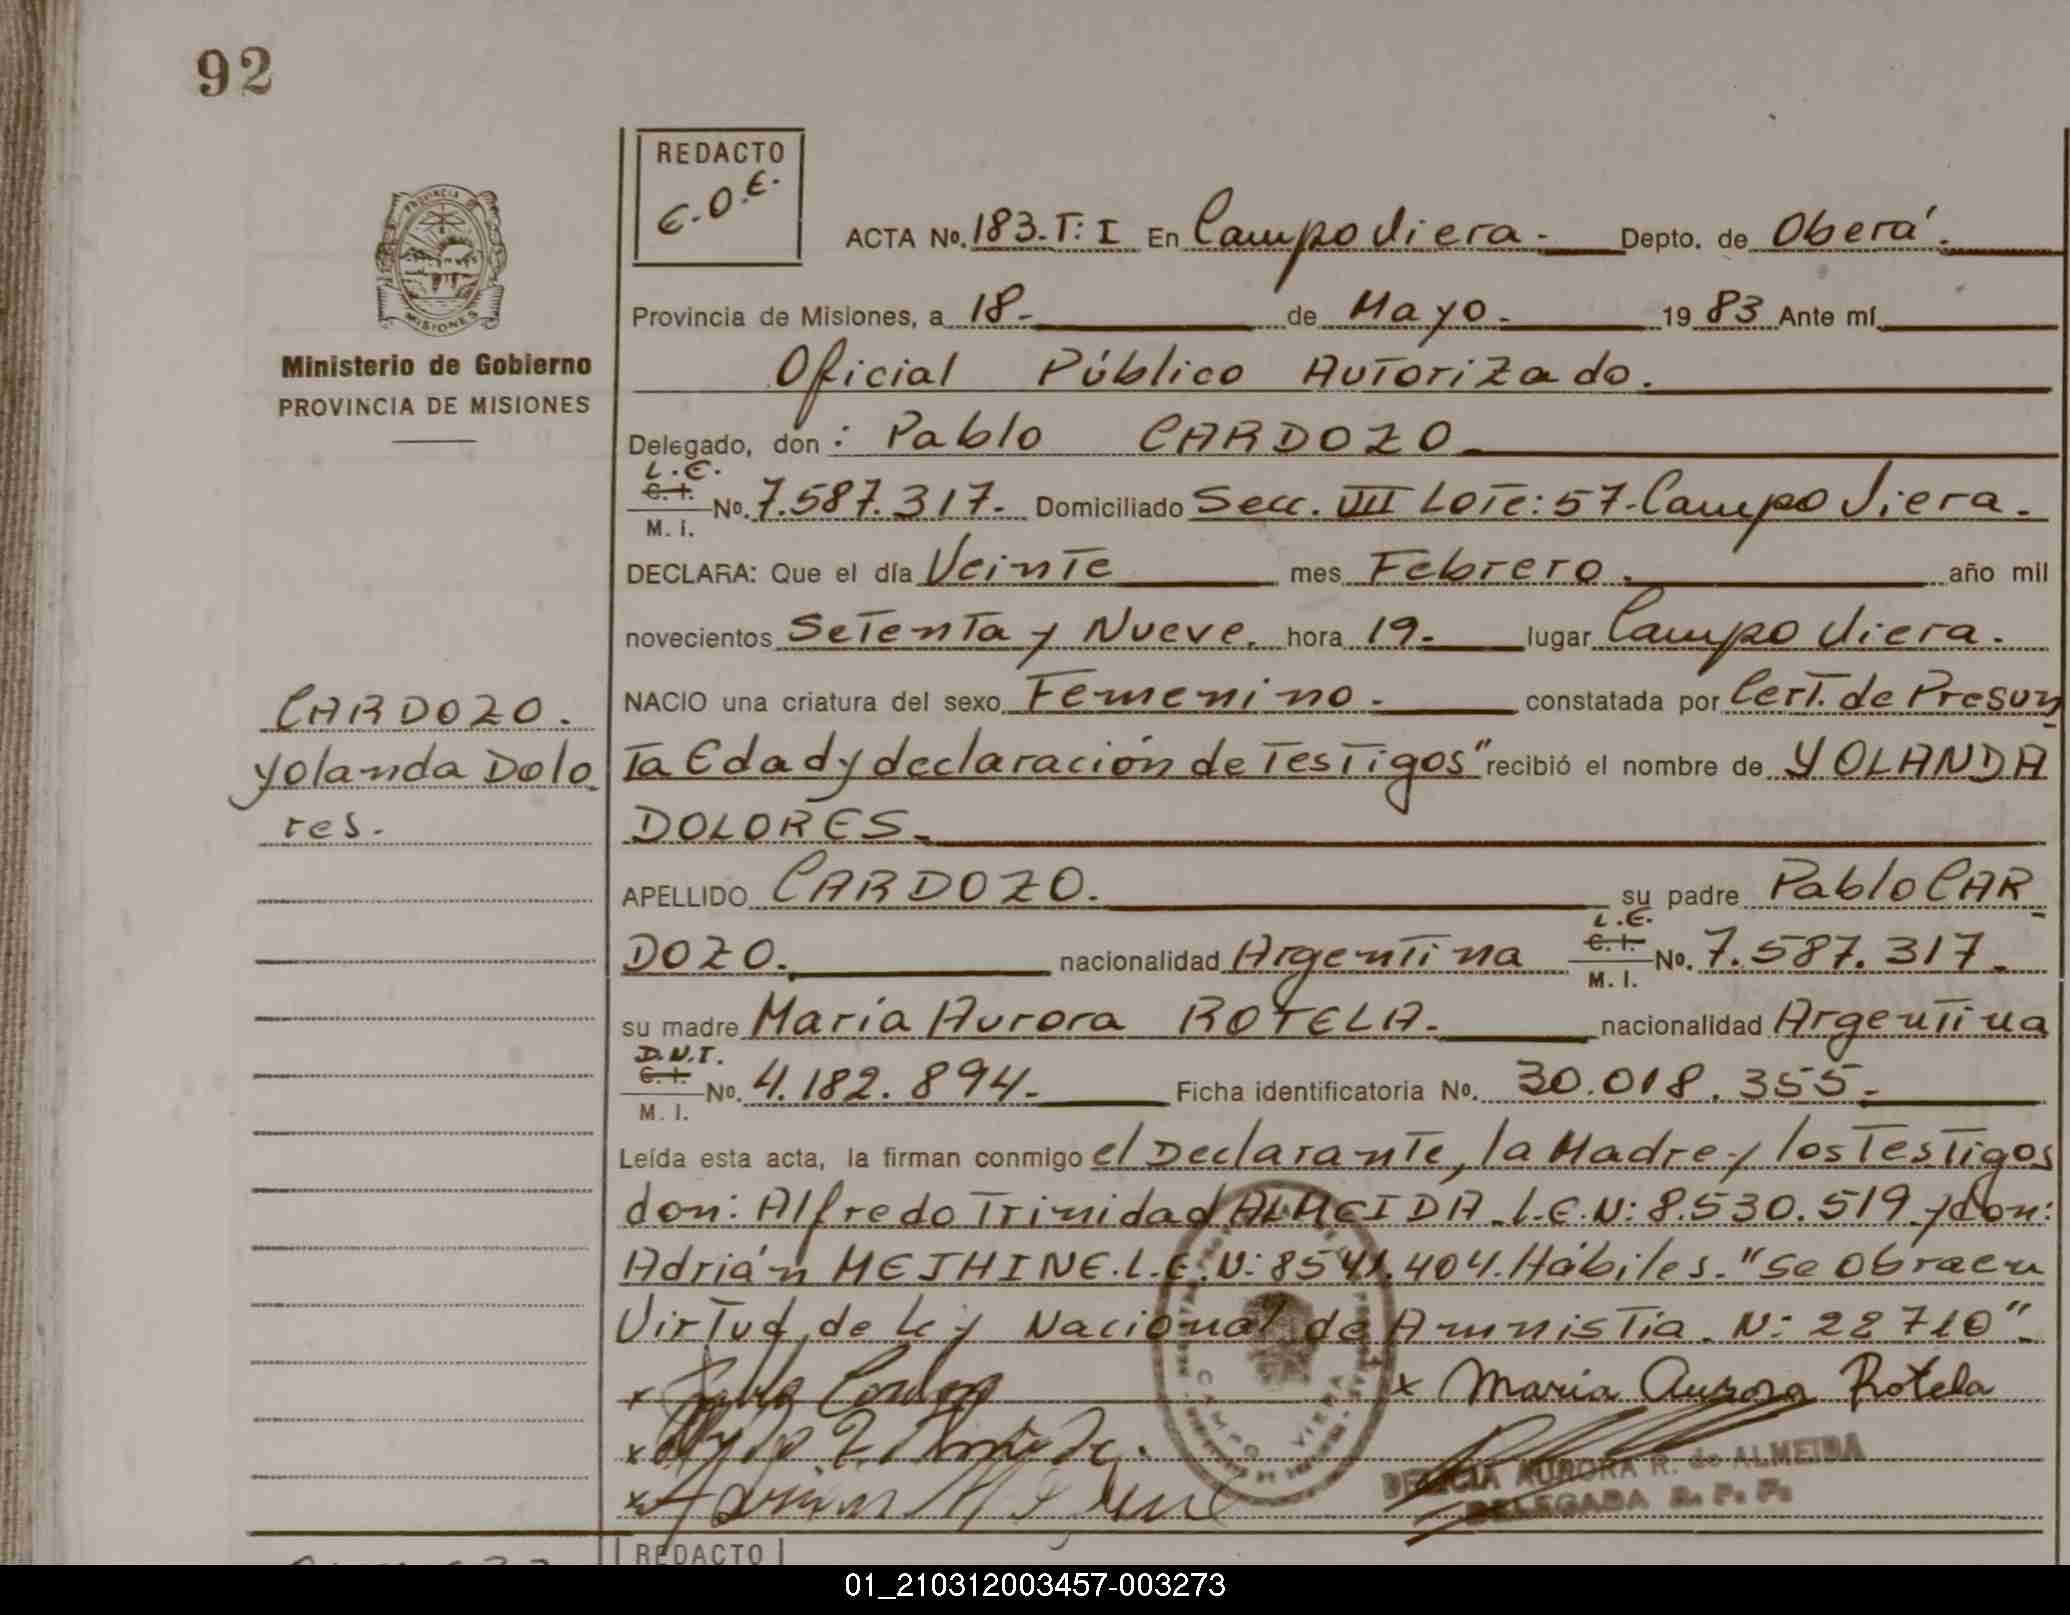 92
REDACTO
E.O.E.
PROVINCIA D
MISIONES
Ministerio de Gobierno
PROVINCIA DE MISIONES
CARDOZO.
Yolanda Dolo
res.
ACTA No. 183.T: I En Campo Viera. Depto. de Oberá.
Provincia de Misiones, a 18. de Mayo. 19 83 Ante mí
Oficial Público Autorizado.
Delegado, don : Pablo CARDOZO
L.E.
C. I.
M. I. No. 7.587.317. Domiciliado Secc. VIII Lote: 57. Campo Viera.
DECLARA: Que el día Veinte mes Febrero. año mil
novecientos Setenta y Nueve. hora 19. lugar Campo Viera.
NACIO una criatura del sexo Femenino. constatada por Cert. de Presun
ta Edad y declaración de Testigos" recibió el nombre de YOLANDA
DOLORES.
APELLIDO CARDOZO. su padre Pablo CAR
DOZO. nacionalidad Argentina L.E. C. I. M. I. No. 7.587.317.
su madre María Aurora ROTELA. nacionalidad Argentina
D.N.I.
C. I.
M. I. No. 4.182.894. Ficha identificatoria No. 30.018.355.
Leída esta acta, la firman conmigo el Declarante, la Madre y los Testigos
don: Alfredo Trinidad ALMEIDA. L.E.N: 8.530.519 y don:
Adrián MEJHINE. L.E.N: 8541.404. Hábiles. "Se obra en
Virtud de Ley Nacional de Amnistía. N: 22710"
x x Maria Aurora Rotela
x
x
CAMPO VIERA
DELICIA AURORA R. de ALMEIDA
DELEGADA R. P. P.
REDACTO
01_210312003457-003273